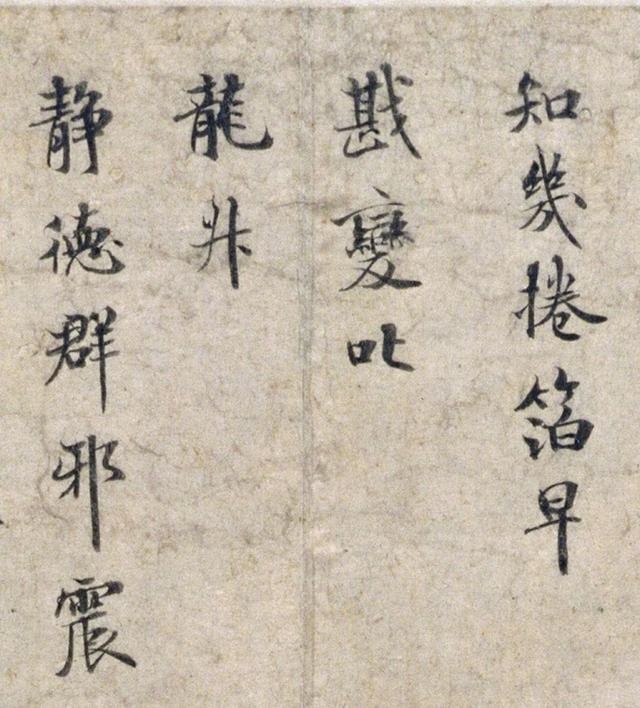 知幾捲箔早
戡變叱
龍升
静德群邪震